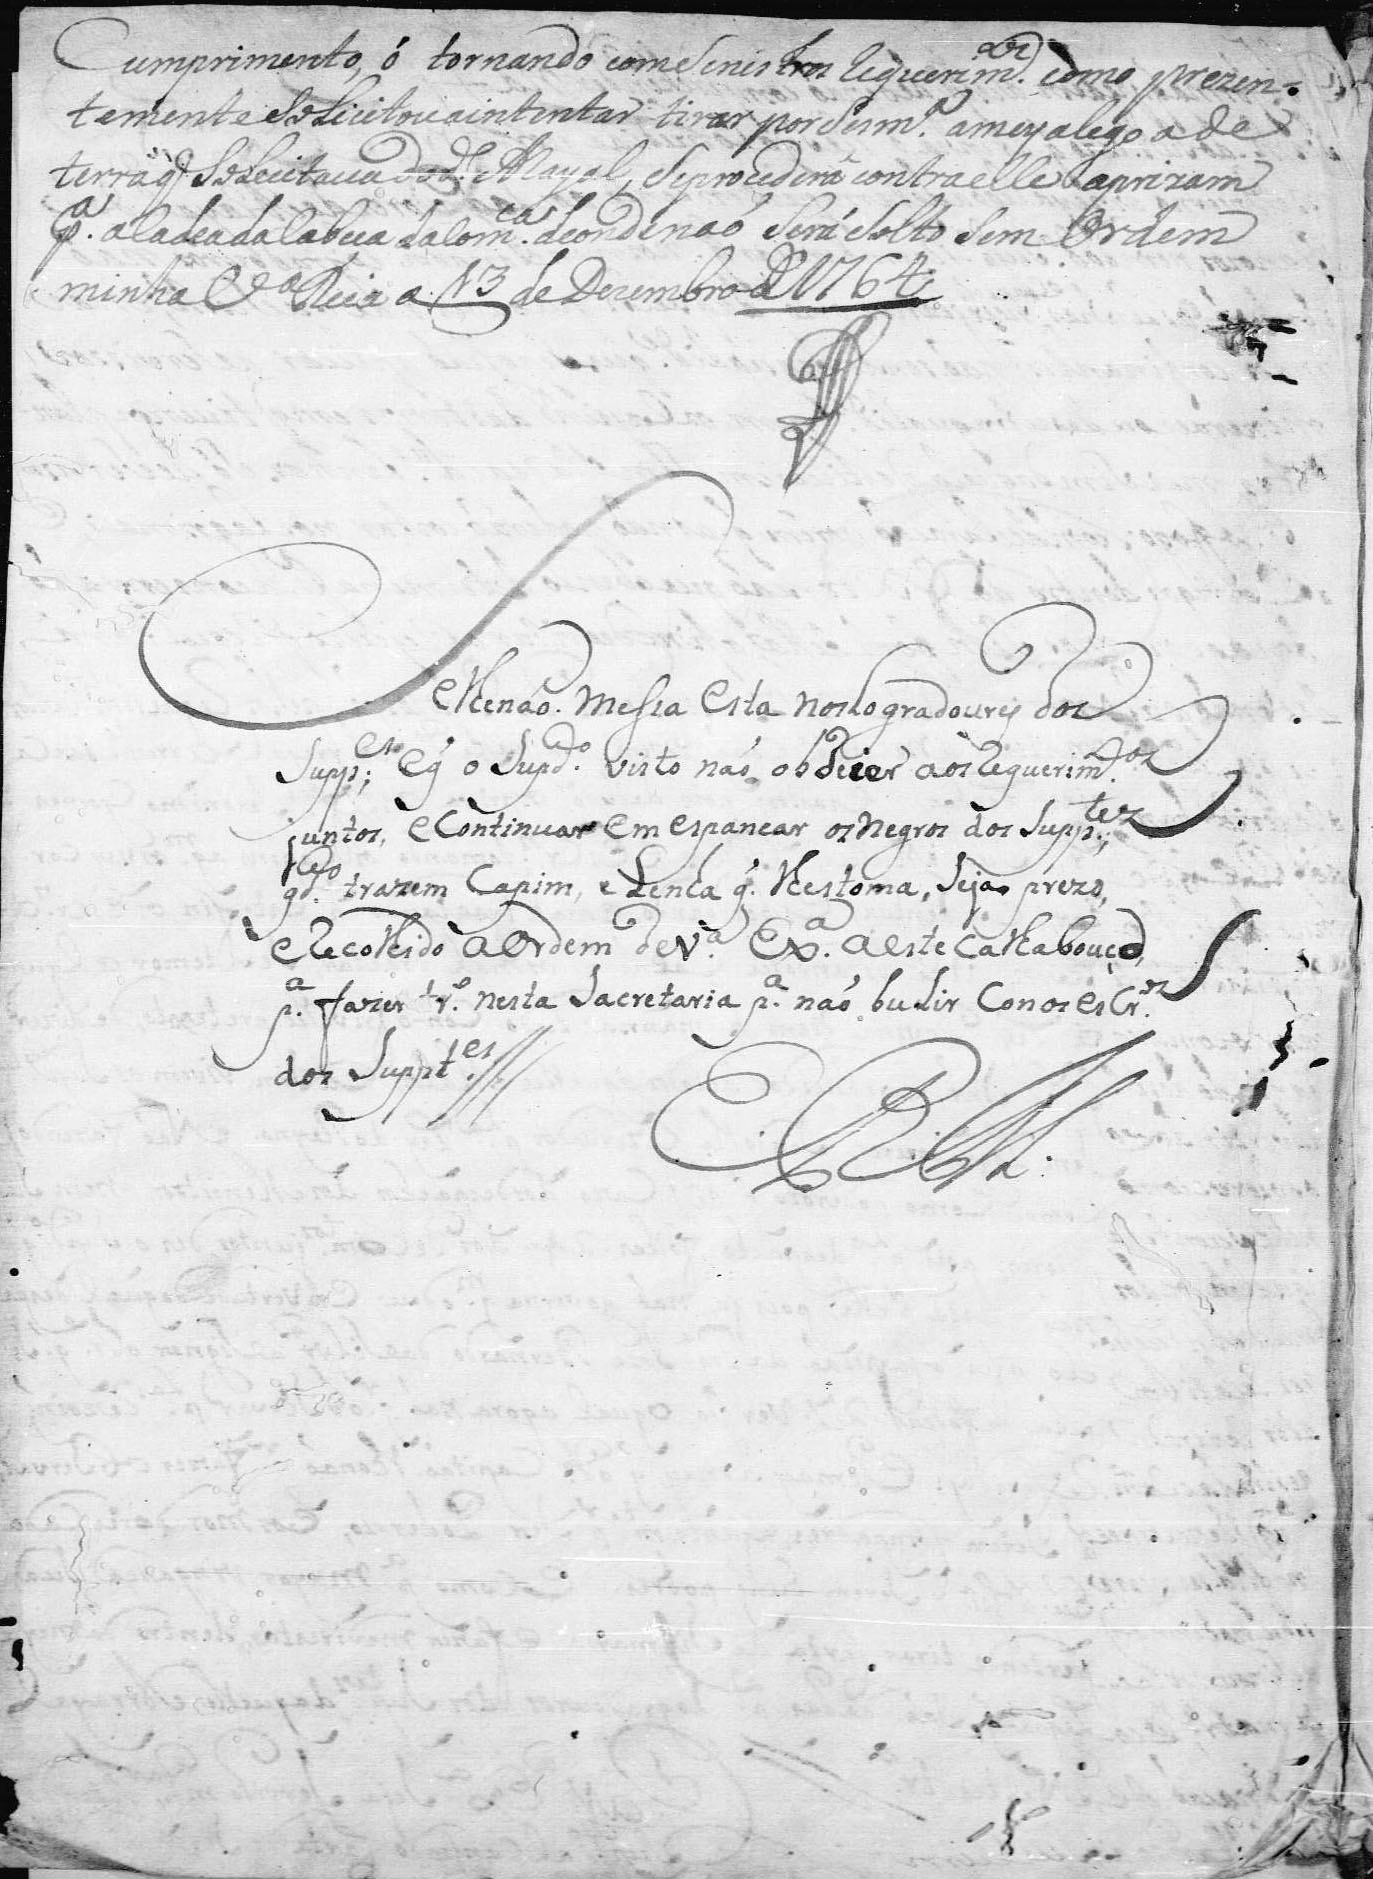 Cumprimento, ó tornando com Senistros Requerim.tos como prezen-
temente Solicitou aintentar tirar por Sy m.a ameya legoa de
terra q Solicitava do d.o Mayal, Seprocederá contra elle aprizam
p.a a Cadea da Cabeca da Com.ca de onde naó Será Solto Sem Ordem
minha Reciffe a 13 de Dezembro de 1764
Ehenaó. Messa Esta nos Logradourys dos
Supp.es, Eq̃ o Supd.o visto naó obdecer aos Requerim.tos
juntos, eContinuar Em espancar os Negros dos Supp.tes,
qd.o trazem Capim, e Lenha q̃. lhes toma, Seja prezo,
eRecolhido aOrdem de V.a Ex.a aeste Calhabouço,
p.a fazer tr.o nesta Sacretaria p.a naó bulir Con os esCr.os
dos Suppt.es //
E. R. M.